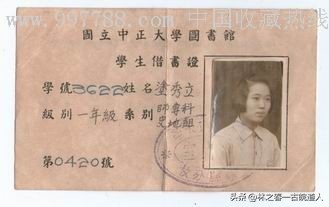 www.997788.com 中国收藏热线
國立中正大學圖書館
學生借書證
學號3622姓名塗秀立
級別一年級系別師專科史地組
第0420號
头条@林之馨一古皖道人